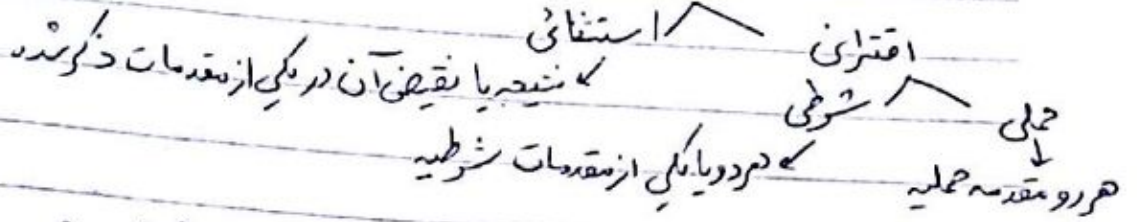 اقترانی استثنائی
نتیجه یا نقیض آن در یکی از مقدمات ذکر شده
حملی شرطی
هر دو یا یکی از مقدمات شرطیه
هر دو مقدمه حملیه